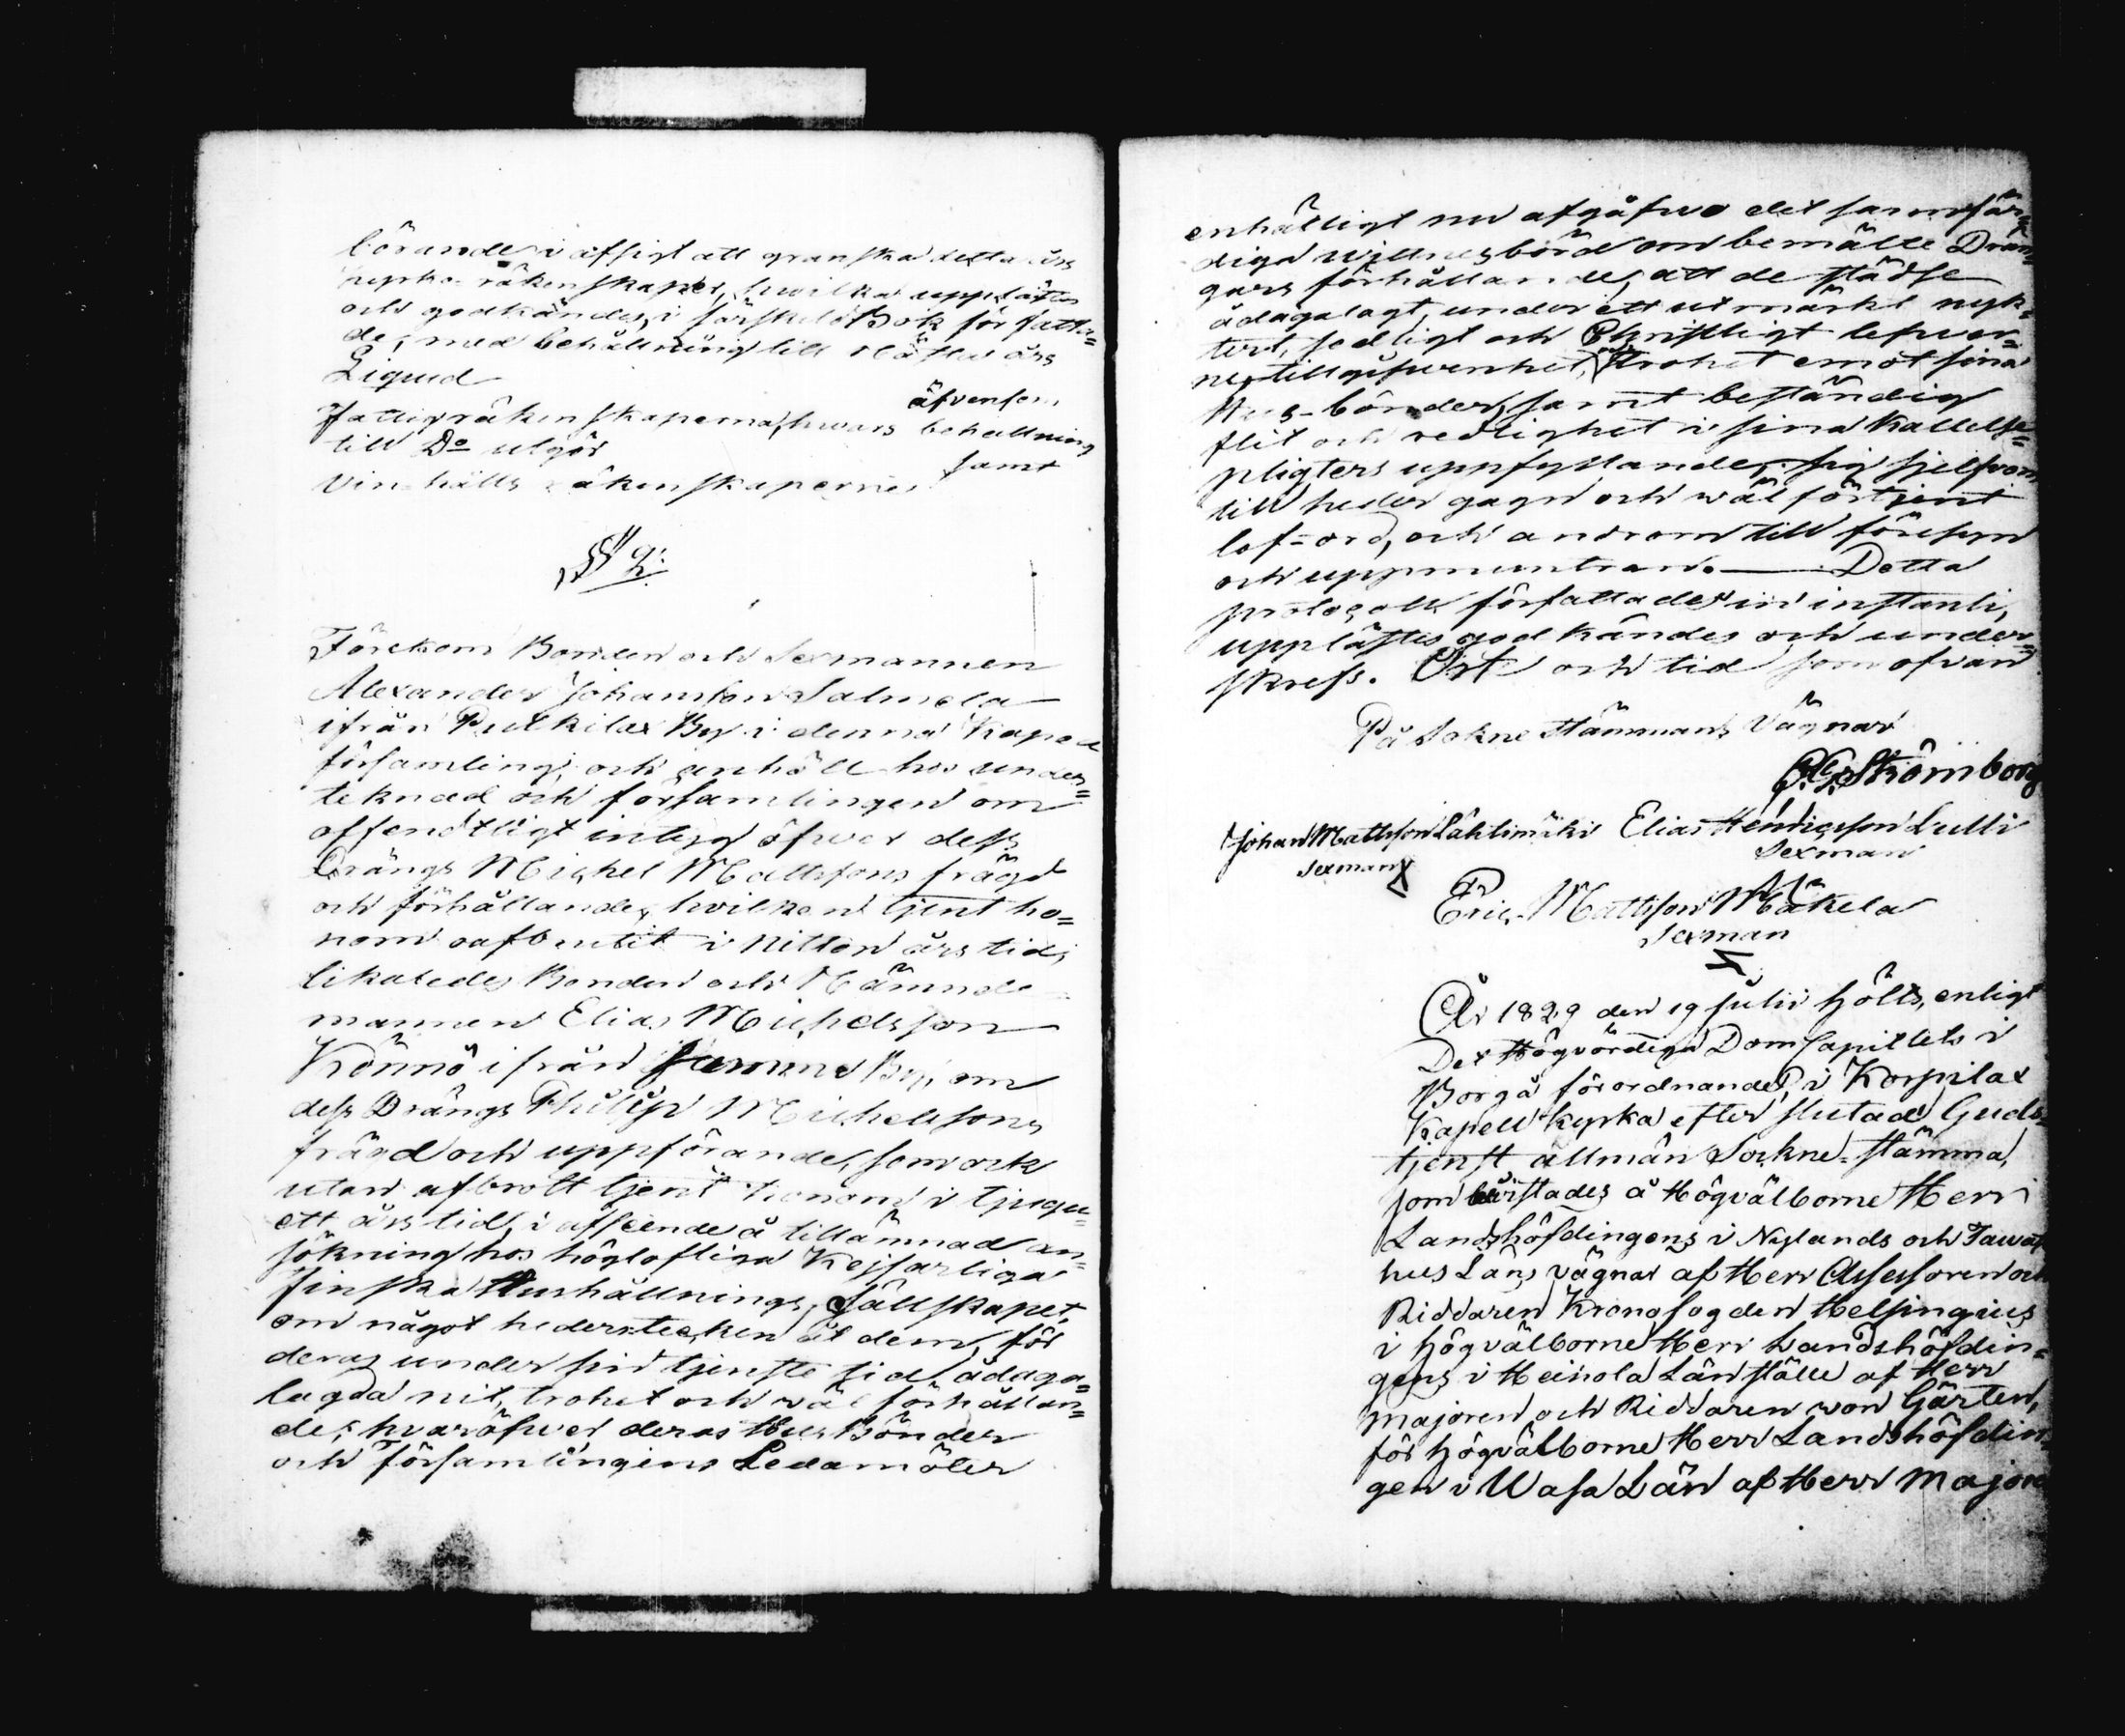 börande i afsigt att granska detta års
kyrko räkenskaper, hwilka upplästes
och godkändes, i särskild Bok författa=
de, med behållning till nästa års
Liquid
äfvensom
Fattigräkenskaperna, hwars behållning
till Do utgör
samt
Vinhålls räkenskaperne
§ 2:
Förekom Bonden och Sexmannen
Alexander Johansson Salmela
ifrån Putkilax By i denna Kapell
församling, och anhöll hos under=
teknad och församlingen om
offendtligt intyg öfwer dess
Drängs Michel Mattssons frägd
och förhållande, hvilken tjent ho=
nom oafbrutit i Nitton års tid,
likaledes Bonden och Nämnde
mannen Elias Michelsson
Könnö ifrån samma By, om
dess Drängs Philip Michelssons
frägd och uppförande, som ock
utan afbrott tjent honom i tjugu=
ett års tid, i afseende å tillämnad an=
sökning hos höglofliga Kejserliga
finska Hushållnings Sällskapet,
om något hederstecken åt dem, för
deras under sin tjenste tid ådaga=
lagda nit, trohet och wäl förhållan=
de; hvaröfwer deras HusBönder
och Församlingens Ledamöter
enhälligt nu afgåfwo det sannfär=
diga wittnesbörd om bemälte Drän=
gars förhållande, att de städse
ådagalagt, under ett utmärkt nyk=
tert, sedligt och Christligt lefwer=
ne, tillgifwenhet, och trohet emot sina
Hus-bönder, samt beständig
flit och redlighet i sina kallelse=
pligters uppfyllande, sig sjelfvom
till heder gagn och wäl förtjent
lof=ord, och androm till föresyn
och uppmuntran. — Detta
protocoll författades in instanti,
upplästes godkändes och under=
skrefs. Ort och tid som ofvan
På Sokne Stämmans Vägnar
Strömborg
Johan Mattsson Lähtimäki Elias Henricsson Lulli
Sexman Sexman
Eric Mattsson Mäkelä
Sexman
År 1829 den 19 Julii hölts, enligt
Det Högvördiga Dom Capittlets i
Borgå förordnande, i Korpilax
Kapell kyrka efter slutad Guds=
tjenst allmän Sockne=stämma,
som bevistades å Högvälborne Herr
Landshöfdingens i Nylands och Tawast
hus Läns vägnar af Herr Assessoren och
Riddaren Kronofogden Helsingius,
i högvälborne Herr Landshöfdin=
gens i Heinola Län ställe af Herr
majoren och Riddaren von Gärten,
för högvälborne Herr Landshöfdin=
gen i Wasa Län af Herr Majoren